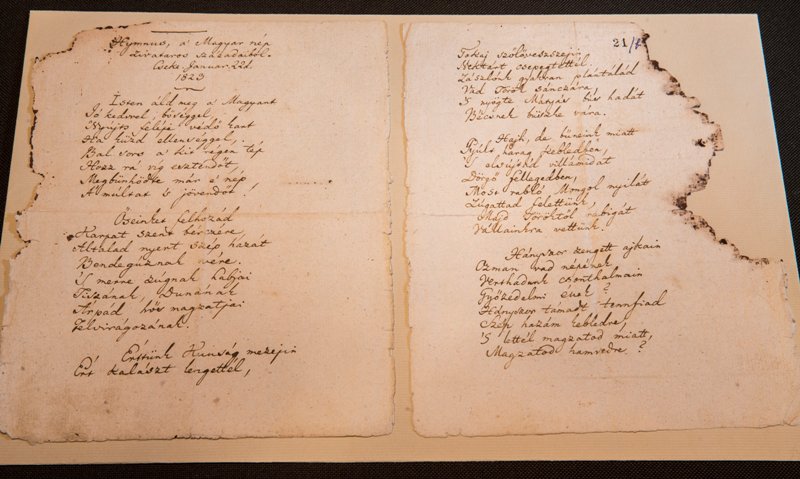 Hymnus, a' Magyar nép
zivataros századaiból.
Cseke. Januar. 22d.
1823
Isten áldd meg a' Magyart
Jó kedvvel, bőséggel,
Nyújts feléje védő kart
Ha küzd ellenséggel;
Bal sors a' kit régen tép
Hozz rá víg esztendőt,
Megbűnhödte már e' nép
A' múltat 's jövendőt!
Őseinket felhozád
Kárpát szent bérczére,
Általad nyert szép hazát
Bendegúznak vére.
'S merre zúgnak habjai
Tiszának, Dunának
Árpád hős magzatjai
Felvirágozának.
Értünk Kunság mezején
Ért kalászt lengettél,
21/
Tokaj szőlővesszein
Nektárt csepegtettél.
Zászlónk gyakran plántálád
Vad Török sánczára,
'S nyögte Mátyás bús hadát
Bécsnek büszke vára.
Hajh, de bűneink miatt
Gyúlt harag kebledben,
'S elsújtád villámidat
Dörgő fellegedben,
Most rabló Mongol nyilát
Zúgattad felettünk,
Majd Töröktől rabigát
Vállainkra vettünk.
Hányszor zengett ajkain
Ozman vad népének
Verthadunk csonthalmain
Győzedelmi ének?
Hányszor támadt tennfiad
Szép hazám kebledre,
'S lettél magzatod miatt,
Magzatod hamvedre?